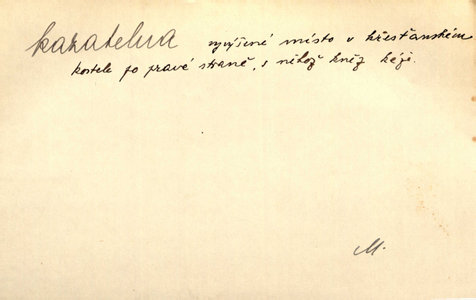 kazatelna vyvýšené místo v křesťanském
kostele po pravé straně, s něhož kněz káže.
M.